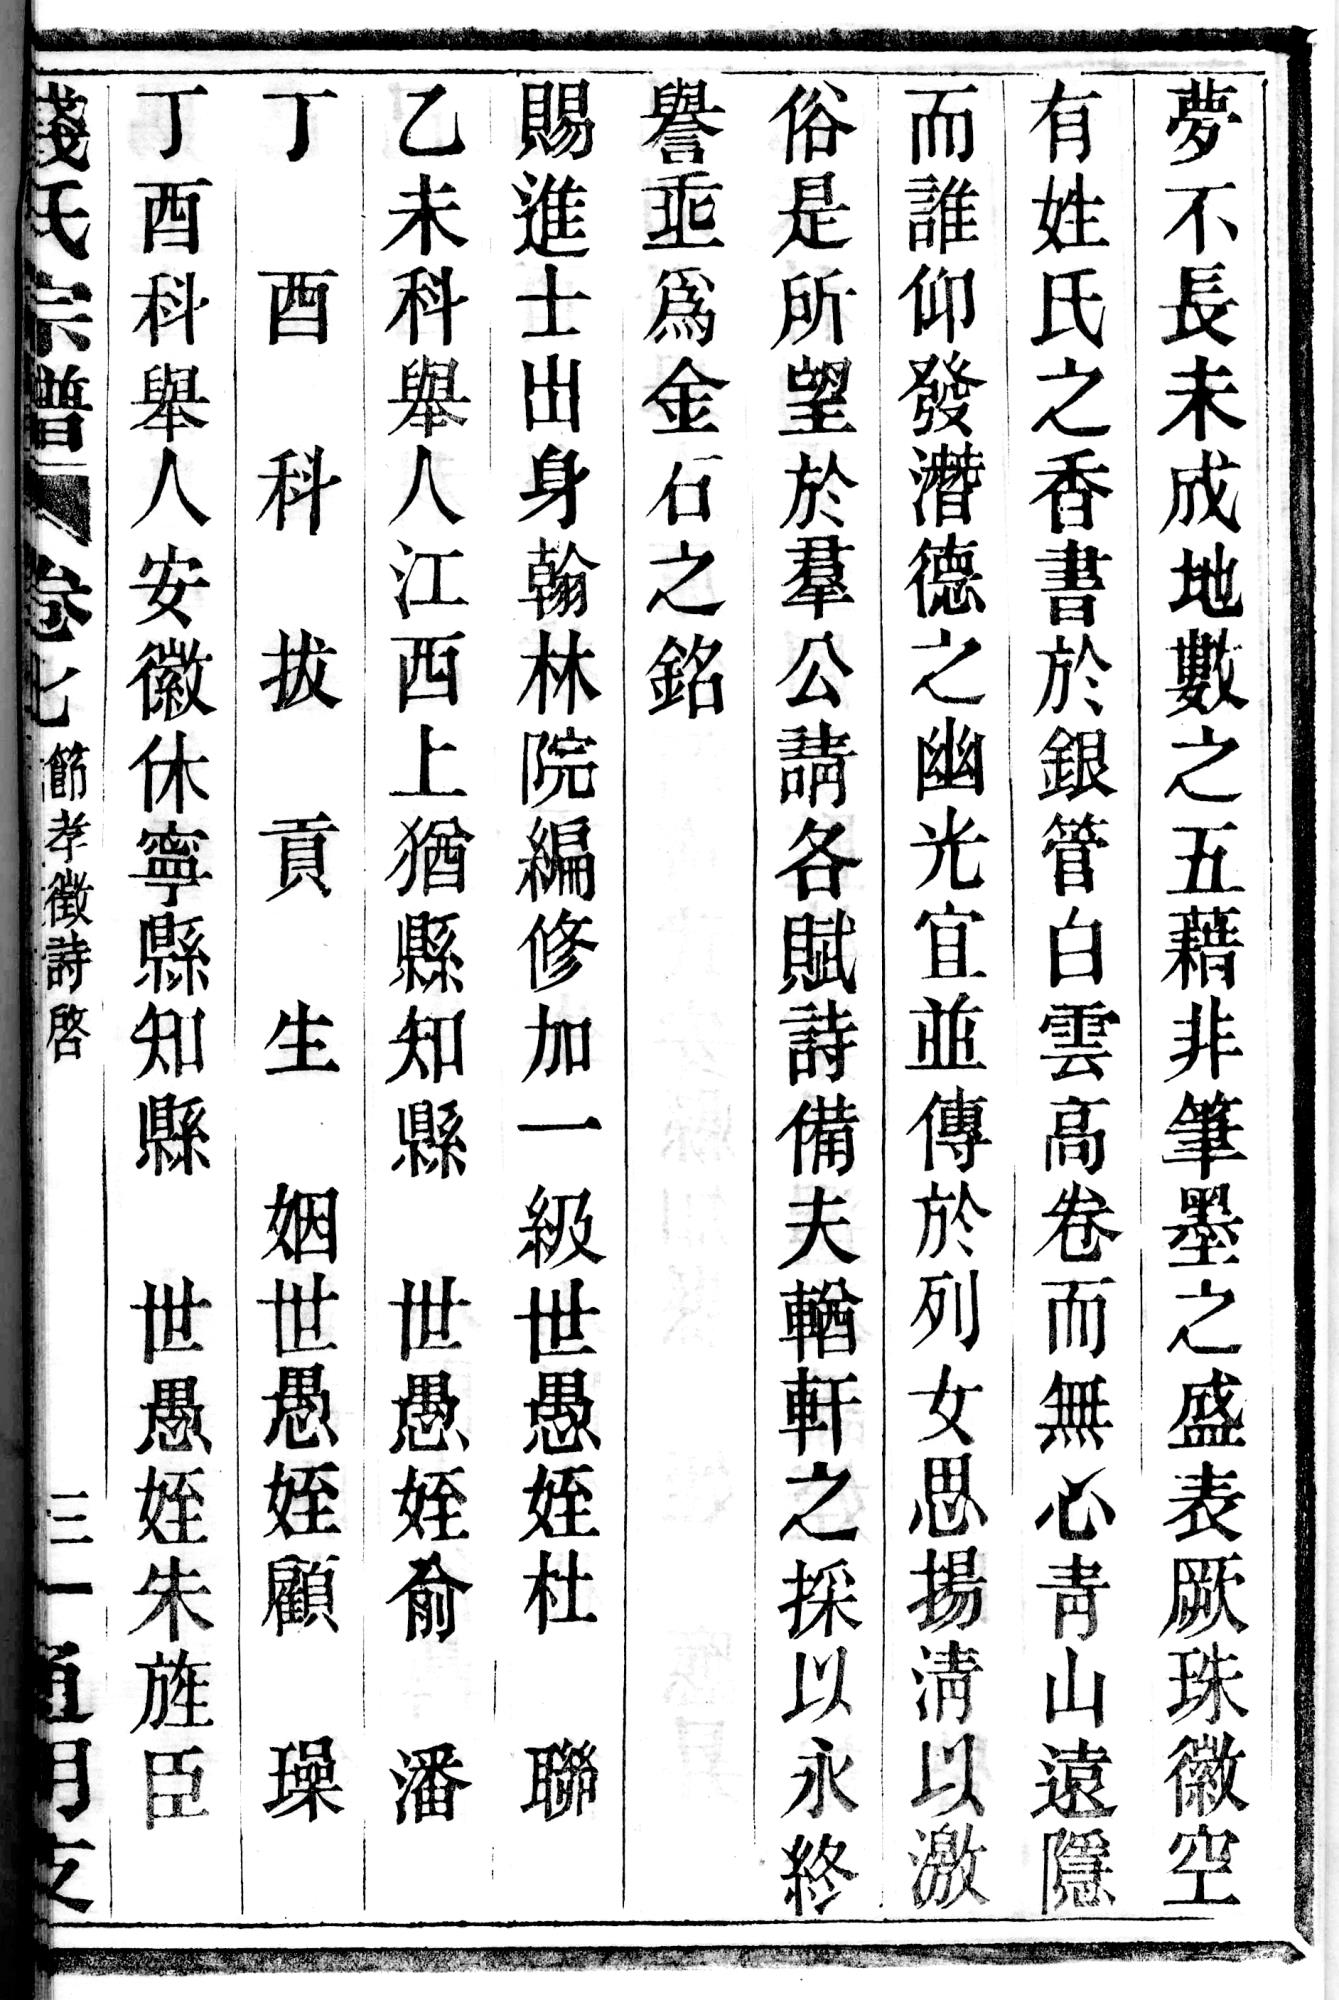 夢不長未成地數之五藉非筆墨之盛表厥珠徽空
有姓氏之香書於銀管白雲高卷而無心青山遠隱
而誰仰發潛德之幽光宜並傳於列女思揚淸以激
俗是所望於羣公請各賦詩備夫輶軒之採以永終
譽亟爲金石之銘
賜進士出身翰林院編修加一級世愚姪杜聯
乙未科舉人江西上猶縣知縣世愚姪俞潘
丁酉科拔貢生姻世愚姪顧璪
丁酉科舉人安徽休寧縣知縣世愚姪朱旌臣
錢氏宗譜卷七節孝徵詩啓三一通明支